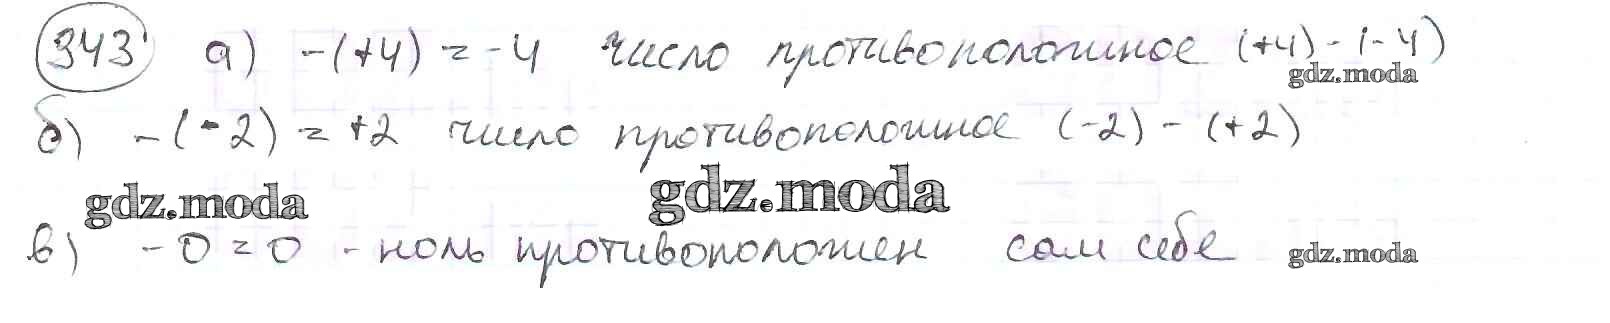 343 а) -(+4) = -4 число противоположное (+4) - (-4)
gdz.moda
б) -(-2) = +2 число противоположное (-2) - (+2)
gdz.moda gdz.moda
в) -0 = 0 - ноль противоположен сам себе gdz.moda